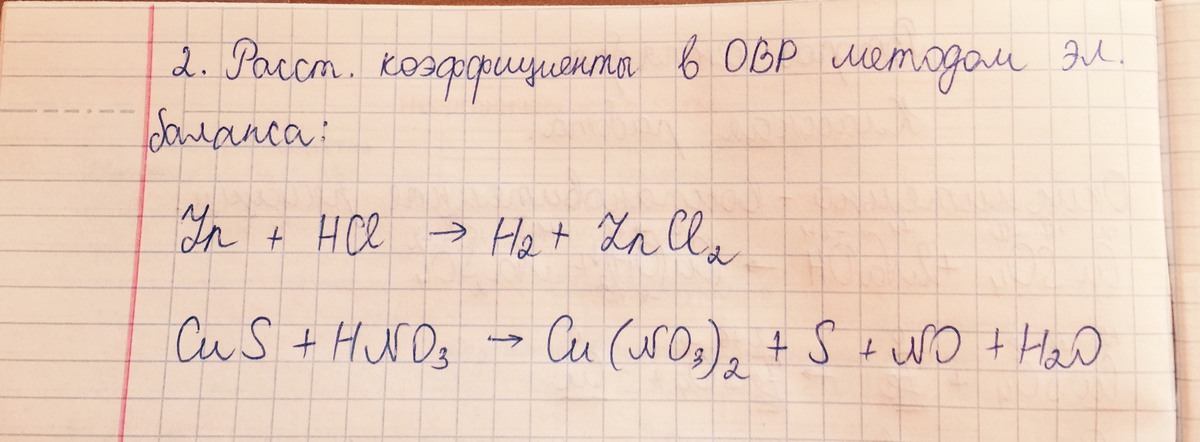 2. Расст. коэффициенты в ОВР методом эл.
баланса:
Zn + HCl → H₂ + ZnCl₂
CuS + HNO₃ → Cu(NO₃)₂ + S + NO + H₂O